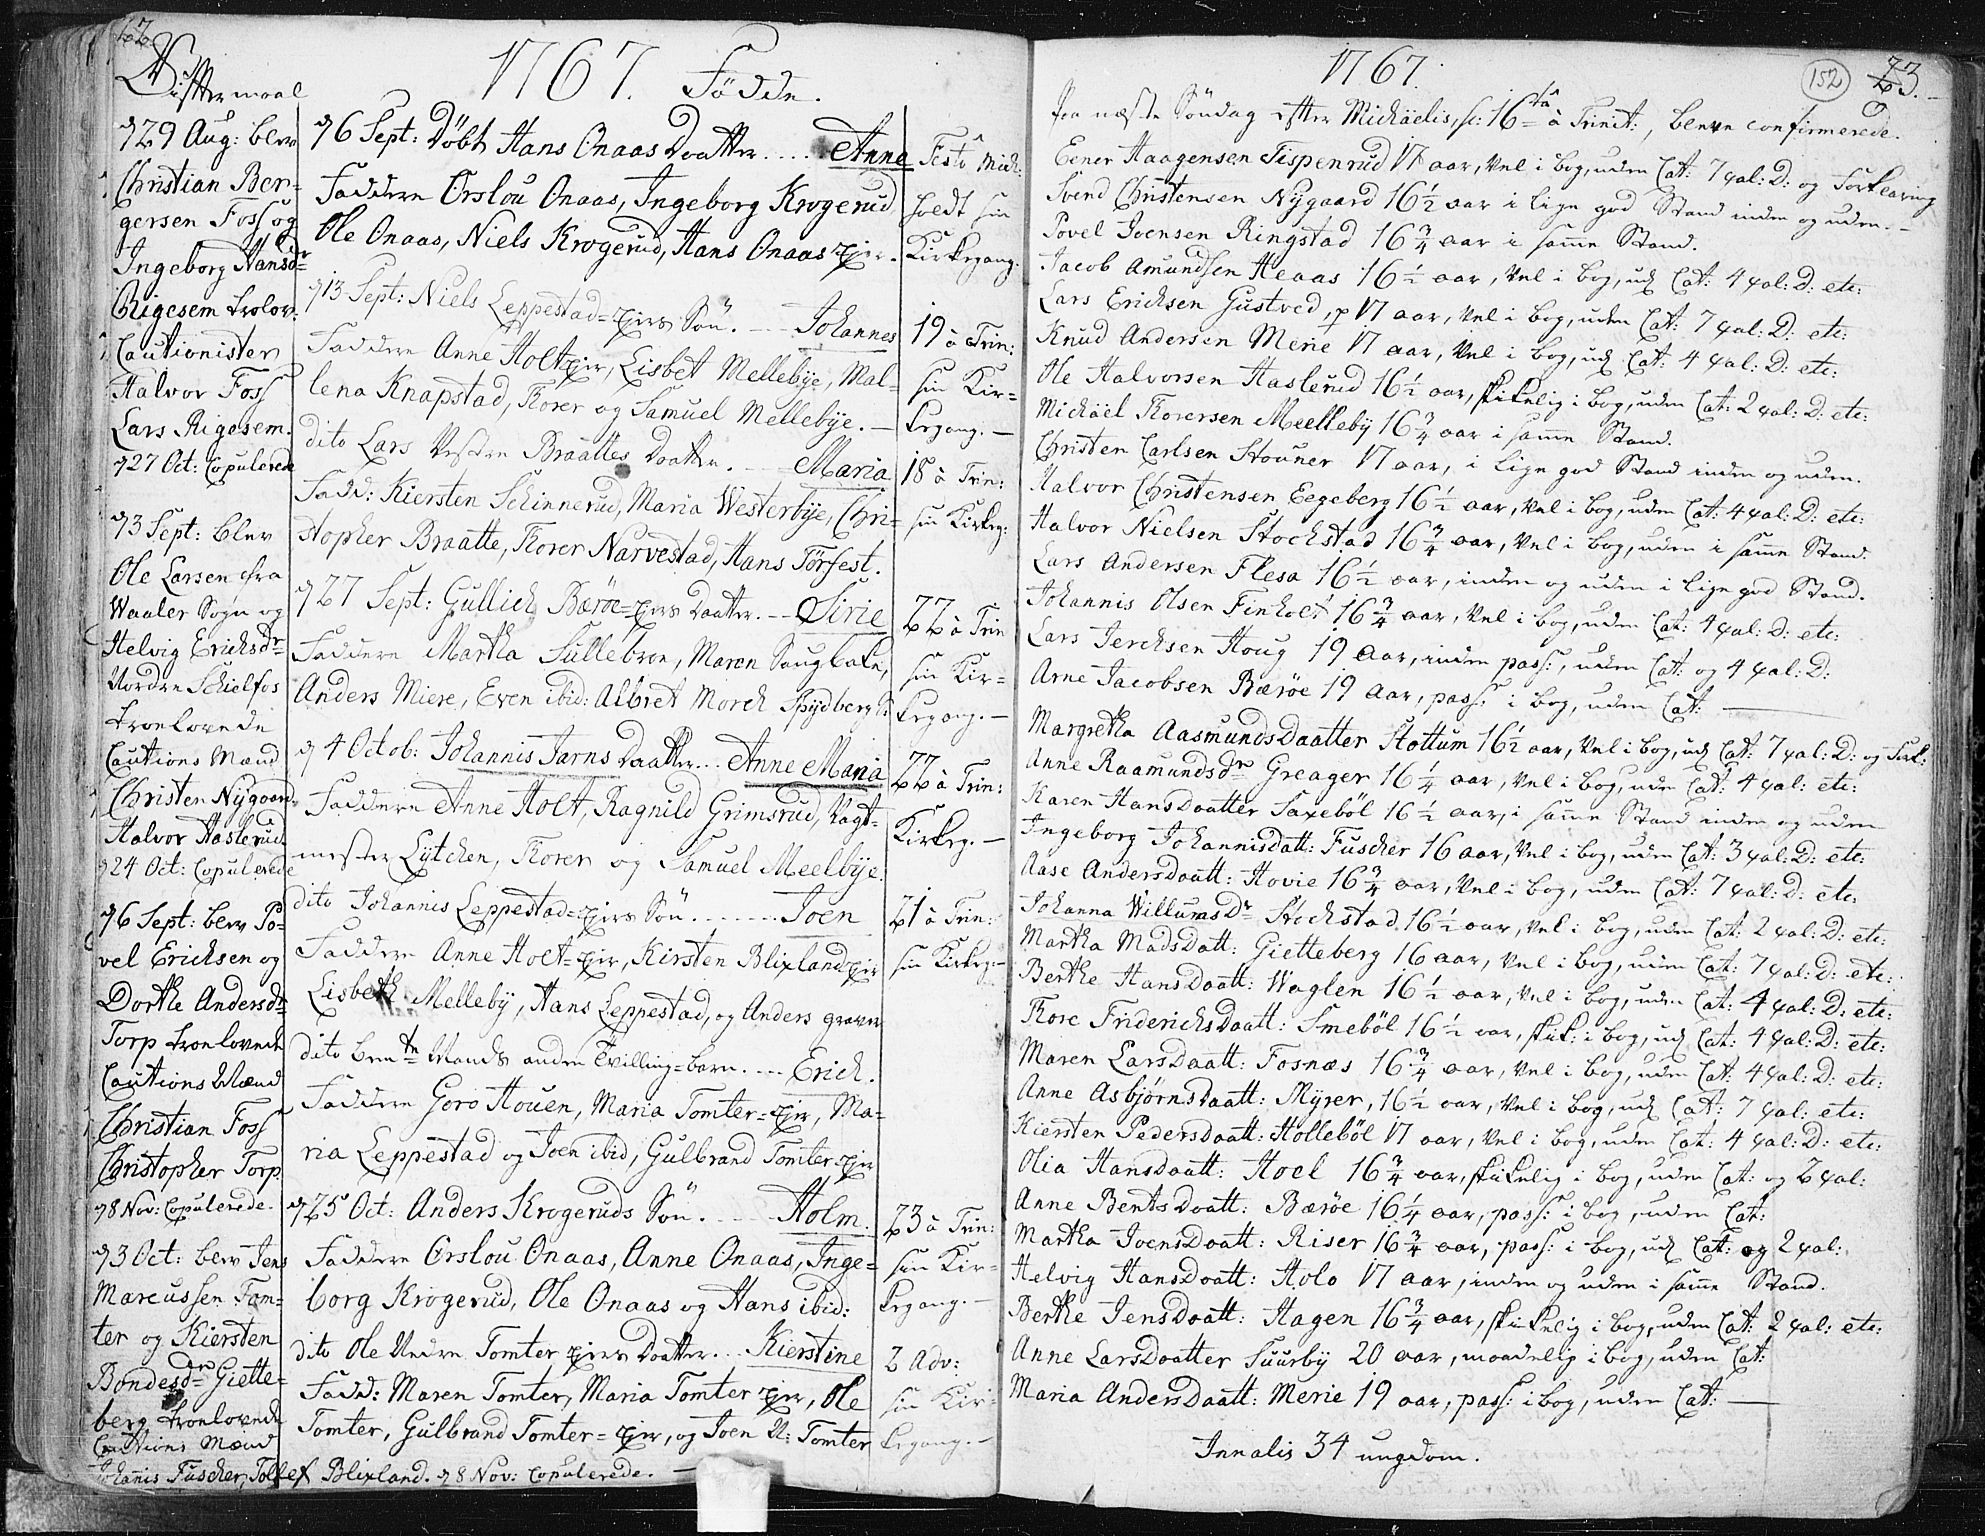 1767. Födde.
Gifftermaal
d 29 Aug: blev
Christian Ber-
gersen Foss og
Ingeborg Hansdr
Rigesem trolov:
Cautionister
Halvor Foss
Lars Rigesem.
d 27 Oct: Copulerede
d 3 Sept: blev
Ole Larsen fra
Waaler Sogn og
Helvig Ericksdr
Nordre Schielfos
troelovede
Cautions Mænd
Christen Nÿgaard
Halvor Haslerud
d 24 Oct: Copulerede
d 6 Sept: blev Po-
vel Ericksen og
Dorthe Andersdr
Torp troelovede
Cautions Mænd
Christian Foss
Christopher Torp
d 8 Nov: Copulerede.
d 3 Oct: blev Jens
Marcussen Tom-
ter og Kiersten
Bondesdr Giette-
berg troelovede
Cautions Mænd
Johanis Fuscher, Tollef Blixland. d 8 Nov: Copulerede.
d 6 Sept: Döbt Hans Onaas Daatter. . . . Anne
Faddere Orslou Onaas, Ingeborg Krogerud
Ole Onaas, Niels Krogerud, Hans Onaas eier.
d 13 Sept: Niels Leppestad-eiers Sön. Johannes
Faddere Anne Holt eier, Lisbet Mellebÿe, Mal-
lena Knapstad, Thorer og Samuel Mellebÿe.
dito Lars Vestre Braattes Daatter. Maria
Fadd: Kiersten Schinnerud, Maria Westerbÿe, Chri-
stopher Braatte, Thorer Narvestad, Hans Törfest.
d 27 Sept: Gullich Bæröe-eiers Daatter. Sirie
Faddere Martha Sullebroe, Maren Saugbake,
Anders Miere, Even ibid: Albret Morch Spÿdberg
d 4 Octob: Johannis Jarns Daatter. . . Anne Maria
Faddere Anne Holt, Ragnild Grimsrud, Vagt-
mester Lÿtchen, Thorer og Samuel Meelbÿe.
dito Johannis Leppestad-eiers Sön. . . . . . Joen
Faddere Anne Holt-eier, Kirsten Blixland eier
Lisbeth Mellebÿ, Hans Leppestad, og Anders graver
dito bem:te Mands anden Tvilling-barn. . . . Erich.
Faddere Goro Houen, Maria Tomter-eier, Ma-
ria Leppestad og Joen ibid, Gulbrand Tomter-eier
d 25 Oct: Anders Krogeruds Sön. . . . Holm.
Faddere Orslou Onaas, Anne Onaas, Inge-
borg Krogerud, Ole Onaas og Hans ibid:
dito Ole Nedre Tomter eiers Daatter. . . Kierstine
Fadd: Maren Tomter, Maria Tomter eier, Ole
Tomter, Gulbrand Tomter-eier, og Joen N: Tomter
Festo Mich:
holdt sin
Kirkegang.
19 à Trin:
sin Kir-
kegang.
18 à Trin:
sin Kirkeg:
22 à Trin
sin Kir-
kegang.
22 à Trin:
Kirkeg.
21 à Trin:
sin Kirkeg:
23 à Trin:
sin Kir-
kegang.
2 Adv:
sin Kir-
kegang.
1767.
152
73.
Paa næste Söndag efter Michäelis, sc: 16ta à Trinit:, bleve confirmerede.
Eener Haagensen Tispenrud 17 aar, vel i bog, uden Cat: 7 ψal: D: og Forklaring
Svend Christensen Nÿgaard 16½ aar i lige god Stand inden og uden.
Povel Joensen Ringstad 16¾ aar i samme Stand.
Jacob Amundsen Heaas 16½ aar, vel i bog, ud Cat: 4 ψal: D: etc:
Lars Ericksen Gustved, p 17 aar, vel i bog, uden Cat: 7 ψal: D: etc:
Knud Andersen Merie 17 aar, vel i bog, ud Cat: 4 ψal: D: etc:
Ole Halvorsen Haslerud 16½ aar, skikelig i bog, uden Cat: 2 ψal: D: etc:
Michäel Thorersen Meelleby 16¾ aar i samme Stand.
Christen Carlsen Houner 17 aar, i lige god Stand inden og uden.
Halvor Christensen Eegeberg 16½ aar, vel i bog, uden Cat: 4 ψal: D: etc:
Halvor Nielsen Stochstad 16¾ aar, vel i bog, uden i samme Stand.
Lars Andersen Flesa 16½ aar, inden og uden i lige god Stand.
Johannis Olsen Finholt 16¾ aar, vel i bog, uden Cat: 4 ψal: D: etc:
Lars Jerchsen Houg 19 aar, inden pass:, uden Cat: og 4 ψal: D:
Arne Jacobsen Bæröe 19 aar, pass: i bog, uden Cat:
Margretha AasmundsDaatter Hottum 16½ aar, vel i bog, ud Cat: 7 ψal: D: og Fork:
Anne Raamundsdr Greager 16¼ aar, vel i bog, uden Cat: 4 ψal: etc:
Karen Hansdaatter Saxeböl 16½ aar, i samme Stand inden og uden
Ingeborg Johannisdatt: Fuscher 16 aar, vel i bog, uden Cat: 3 ψal: D: etc:
Aase Andersdaatt: Hovie 16¾ aar, vel i bog, uden Cat: 7 ψal: D: etc:
Johanna WillumsDr Stochstad 16½ aar, vel i bog, uden Cat: 2 ψal: D: etc:
Martha MadsDatt: Gietteberg 16 aar, vel i bog, uden Cat: 7 ψal: D: etc:
Berthe HansDaatt: Waglen 16½ aar, vel i bog, uden Cat: 4 ψal: D: etc:
Thore FriderichsDaatt: Smeböl 16½ aar, skik: i bog, ud Cat: 4 ψal: D: etc:
Maren LarsDaatt: Fosnæs 16¾ aar, vel i bog, uden Cat: 4 ψal: D: etc:
Anne AsbjörnsDaatt: Mÿrer, 16½ aar, vel i bog, ud Cat: 7 ψal: etc:
Kiersten Pedersdaatt: Holleböl 17 aar, vel i bog, uden Cat: 4 ψal: D: etc:
Olia Hansdaatt: Hoel 16¾ aar, skikelig i bog, uden Cat: og 2 ψal:
Anne BentsDaatt: Bæröe 16¼ aar, pass: i bog, uden Cat:
Martha JoensDaatt: Riser 16¾ aar, pass: i bog, ud Cat: og 2 ψal:
Helvig HansDaatt: Holo 17 aar, inden og uden i samme Stand.
Berthe JensDaatt: Hagen 16¾ aar, skikelig i bog, uden Cat: 2 ψal: etc:
Anne LarsDaatter Suurbÿ 20 aar, maadelig i bog, uden Cat:
Maria Andersdaatt: Merie 19 aar, pass: i bog, uden Cat:
In alis 34 ungdom.